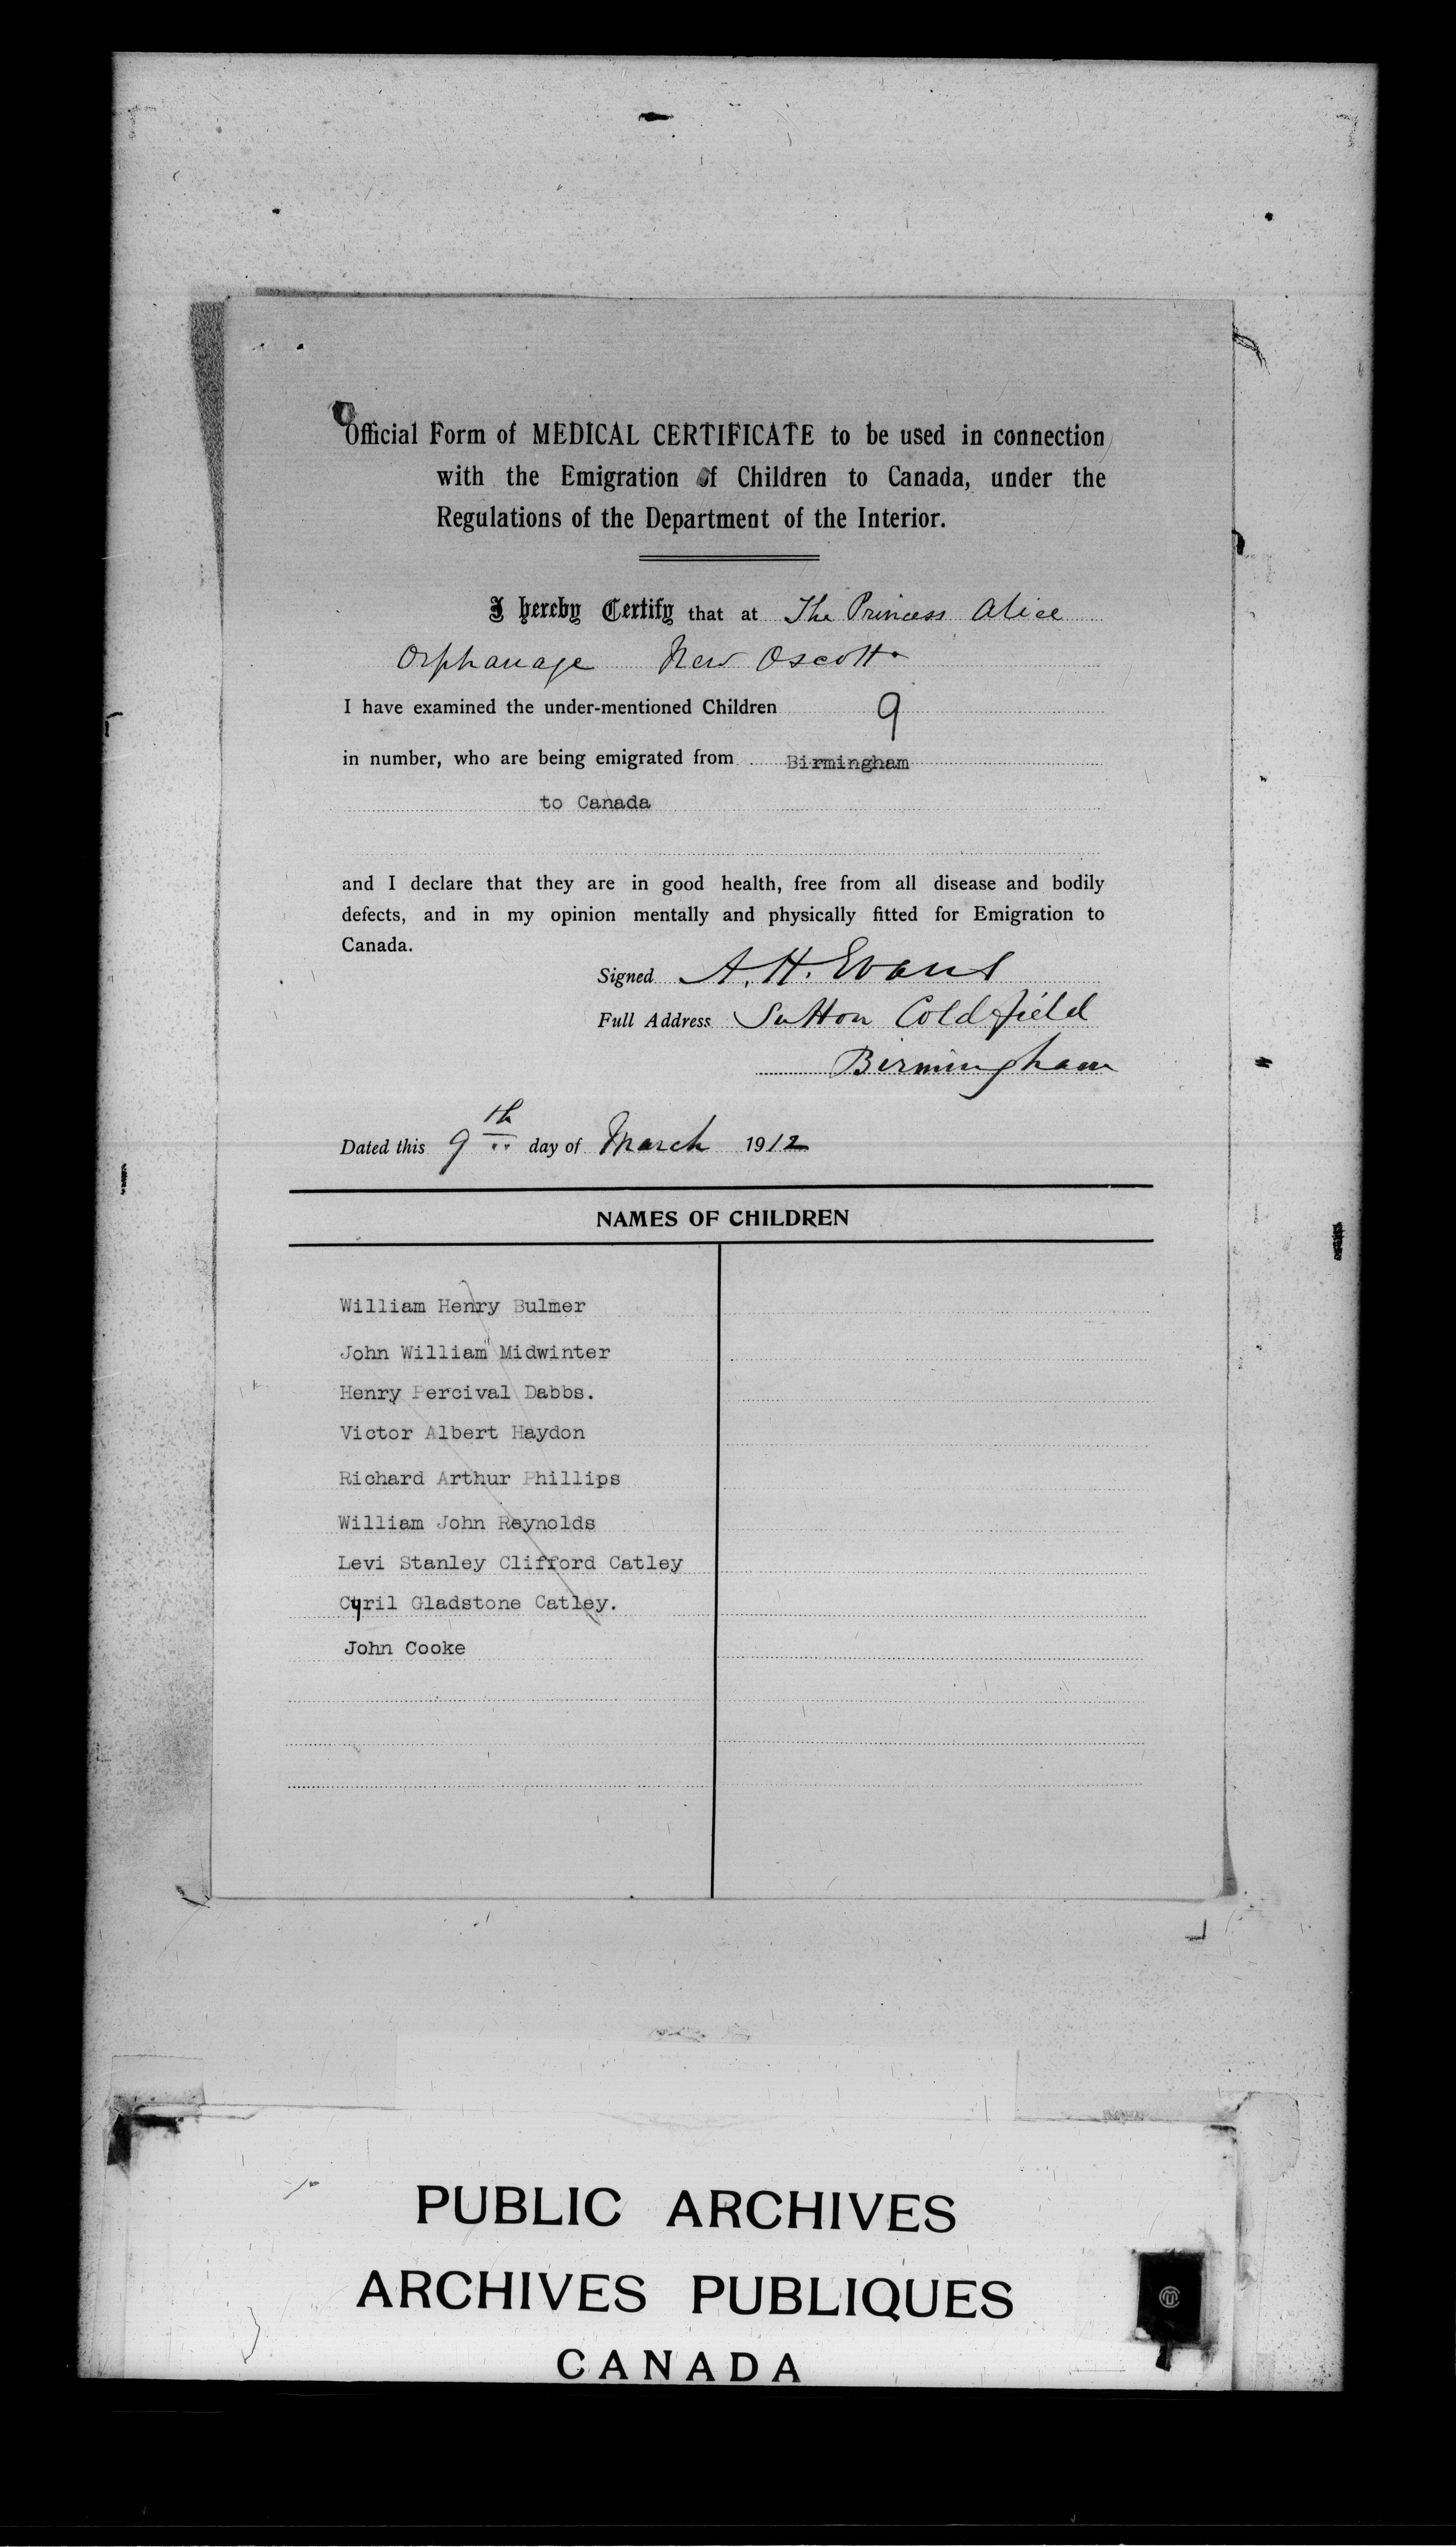 Official Form of MEDICAL CERTIFICATE to be used in connection
with the Emigration of Children to Canada, under the
Regulations of the Department of the Interior.
I hereby Certify that at The Princess Alice
Orphanage New Oscott
I have examined the under-mentioned Children 9
in number, who are being emigrated from Birmingham
to Canada
and I declare that they are in good health, free from all disease and bodily
defects, and in my opinion mentally and physically fitted for Emigration to
Canada.
Signed A. H. Evans
Full Address Sutton Coldfield
Birmingham
Dated this 9th day of March 1912
NAMES OF CHILDREN
William Henry Bulmer
John William Midwinter
Henry Percival Dabbs.
Victor Albert Haydon
Richard Arthur Phillips
William John Reynolds
Levi Stanley Clifford Catley
Cyril Gladstone Catley.
John Cooke
PUBLIC ARCHIVES
ARCHIVES PUBLIQUES
CANADA